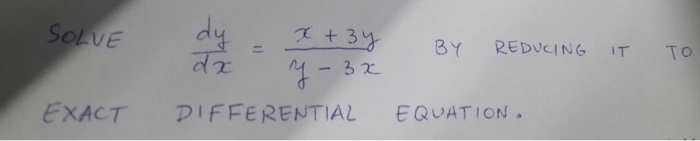 SOLVE dy/dx = x + 3y / y - 3x BY REDUCING IT TO
EXACT DIFFERENTIAL EQUATION.